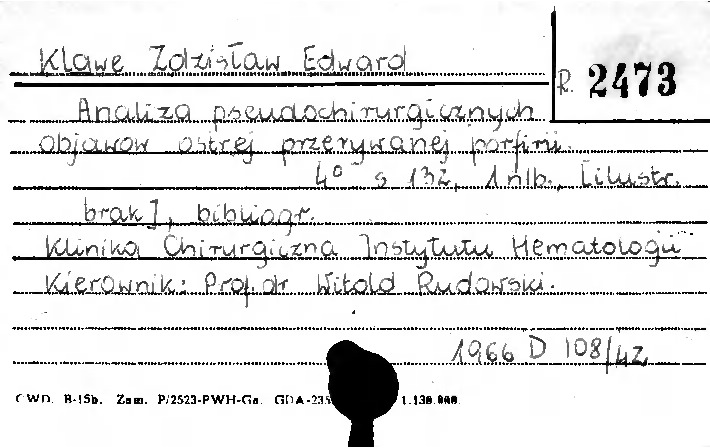 Klawe Zdzisław Edward
R. 2473
Analiza pseudochirurgicznych
objawów ostrej przerywanej porfirii.
4° s 132, 1 nlb., [ilustr.
brak], bibliogr.
Klinika Chirurgiczna Instytutu Hematologii
Kierownik: Prof. dr Witold Rudowski.
1966 D 108/42
CWD. B-15b. Zam. P/2523-PWH-Ga. GDA-235 1.130.000.